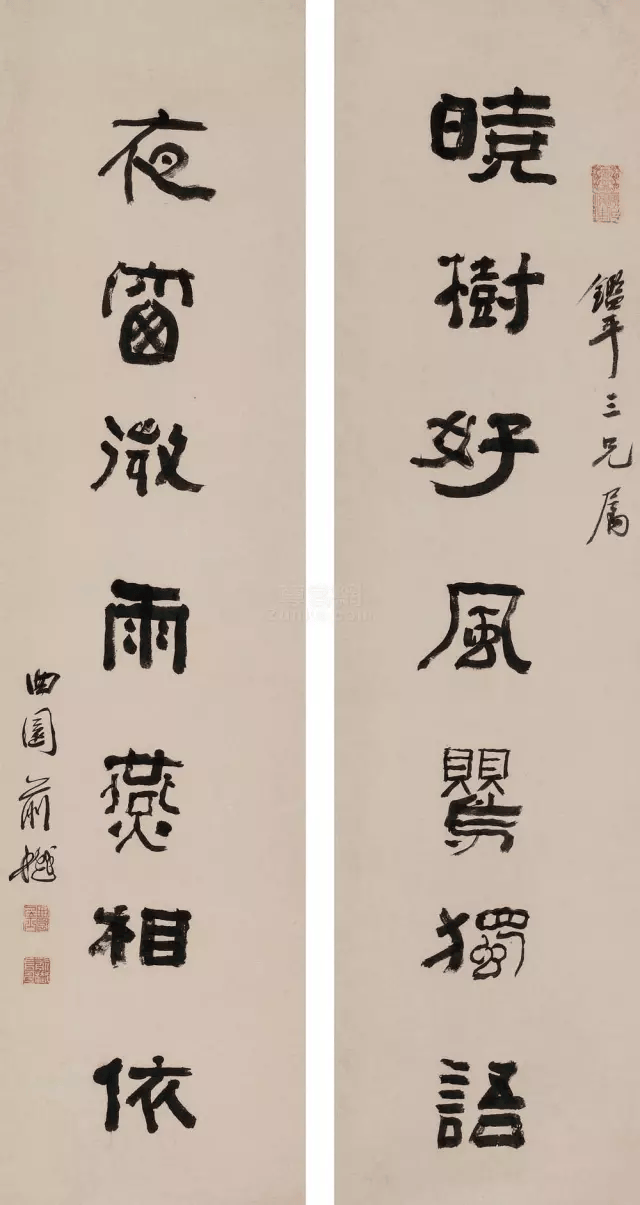 鑑平三兄属
曉樹好風鸎獨語
夜窗微雨燕相依
曲園俞樾